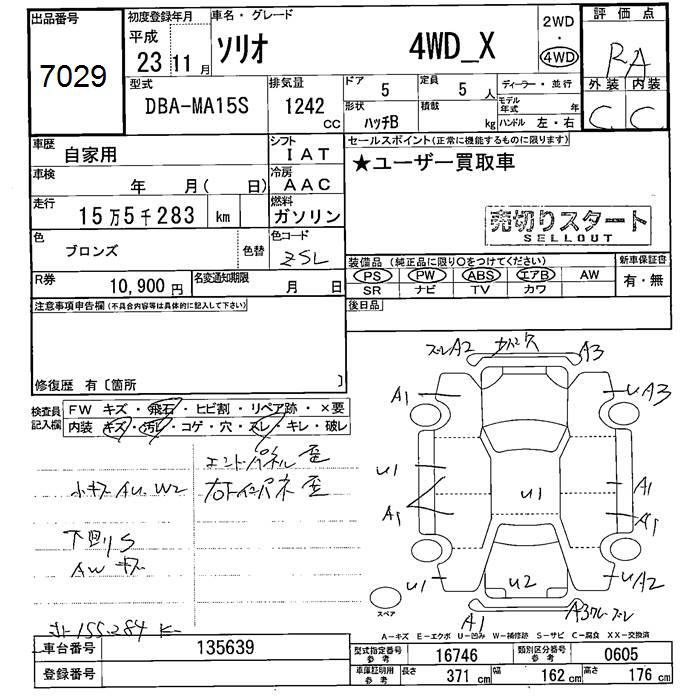 出品番号 初度登録年月 車名・グレード 2WD・4WD 評価点
7029 平成 23 11月 ソリオ 4WD_X RA
型式 排気量 ドア 定員 ディーラー・並行 外装 内装
DBA-MA15S 1242 CC 5 5人 モデル年式 年 C C
形状 積載 ハンドル 左・右
ハッチB kg
車歴 自家用 シフト IAT セールスポイント(正常に機能するものに限ります)
車検 年 月( 日) 冷房 AAC ★ユーザー買取車
走行 15万5千283 km 燃料 ガソリン 売切りスタート
SELLOUT
色 ブロンズ 色替 色コード ZSL
装備品(純正品に限り○をつけてください) 新車保証書
PS PW ABS エアB AW 有・無
SR ナビ TV カワ
R券 10,900円 名変通知期限 月 日 後日品
注意事項申告欄(不具合内容等は具体的に記入して下さい)
修復歴 有〔箇所 〕
検査員記入欄 FW キズ・飛石・ヒビ割・リペア跡・×要
内装・キズ・汚レ・コゲ・穴・スレ・キレ・破レ
エンドパネル歪
小キズAU.W2
下廻りS
AWキズ
155.284
ズレA2 A3
A1 UA3
U1 U1 A1
A1 A1
U1 U2 UA2
スペア
A1
A-キズ E-エクボ U-凹み W-補修跡 S-サビ C-腐食 XX-交換済
車台番号 135639 型式指定番号 参考 16746 類別区分番号 参考 0605
登録番号 車庫証明用 参考 長さ 371cm 幅 162cm 高さ 176cm